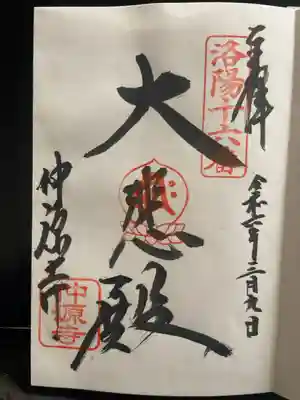 奉拝
洛陽十六番
令和七年二月九日
大悲殿
仲源寺
仲源寺